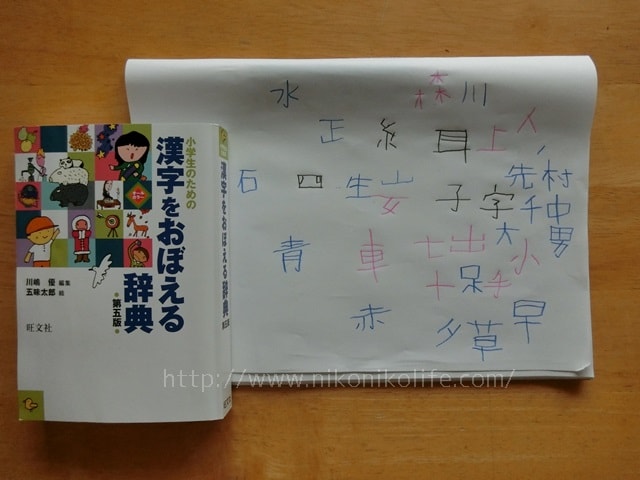 小学生のための
漢字をおぼえる辞典
第五版
川嶋 優 編集
五味太郎 絵
旺文社
漢字をおぼえる辞典
水 森 川
正 糸 耳 上 人
石 四 生 山 女 子 字 先 千 村 中 男
青 車 七 出 大 小
十 足 手
赤 夕 草 早
http://www.nikonikolife.com/